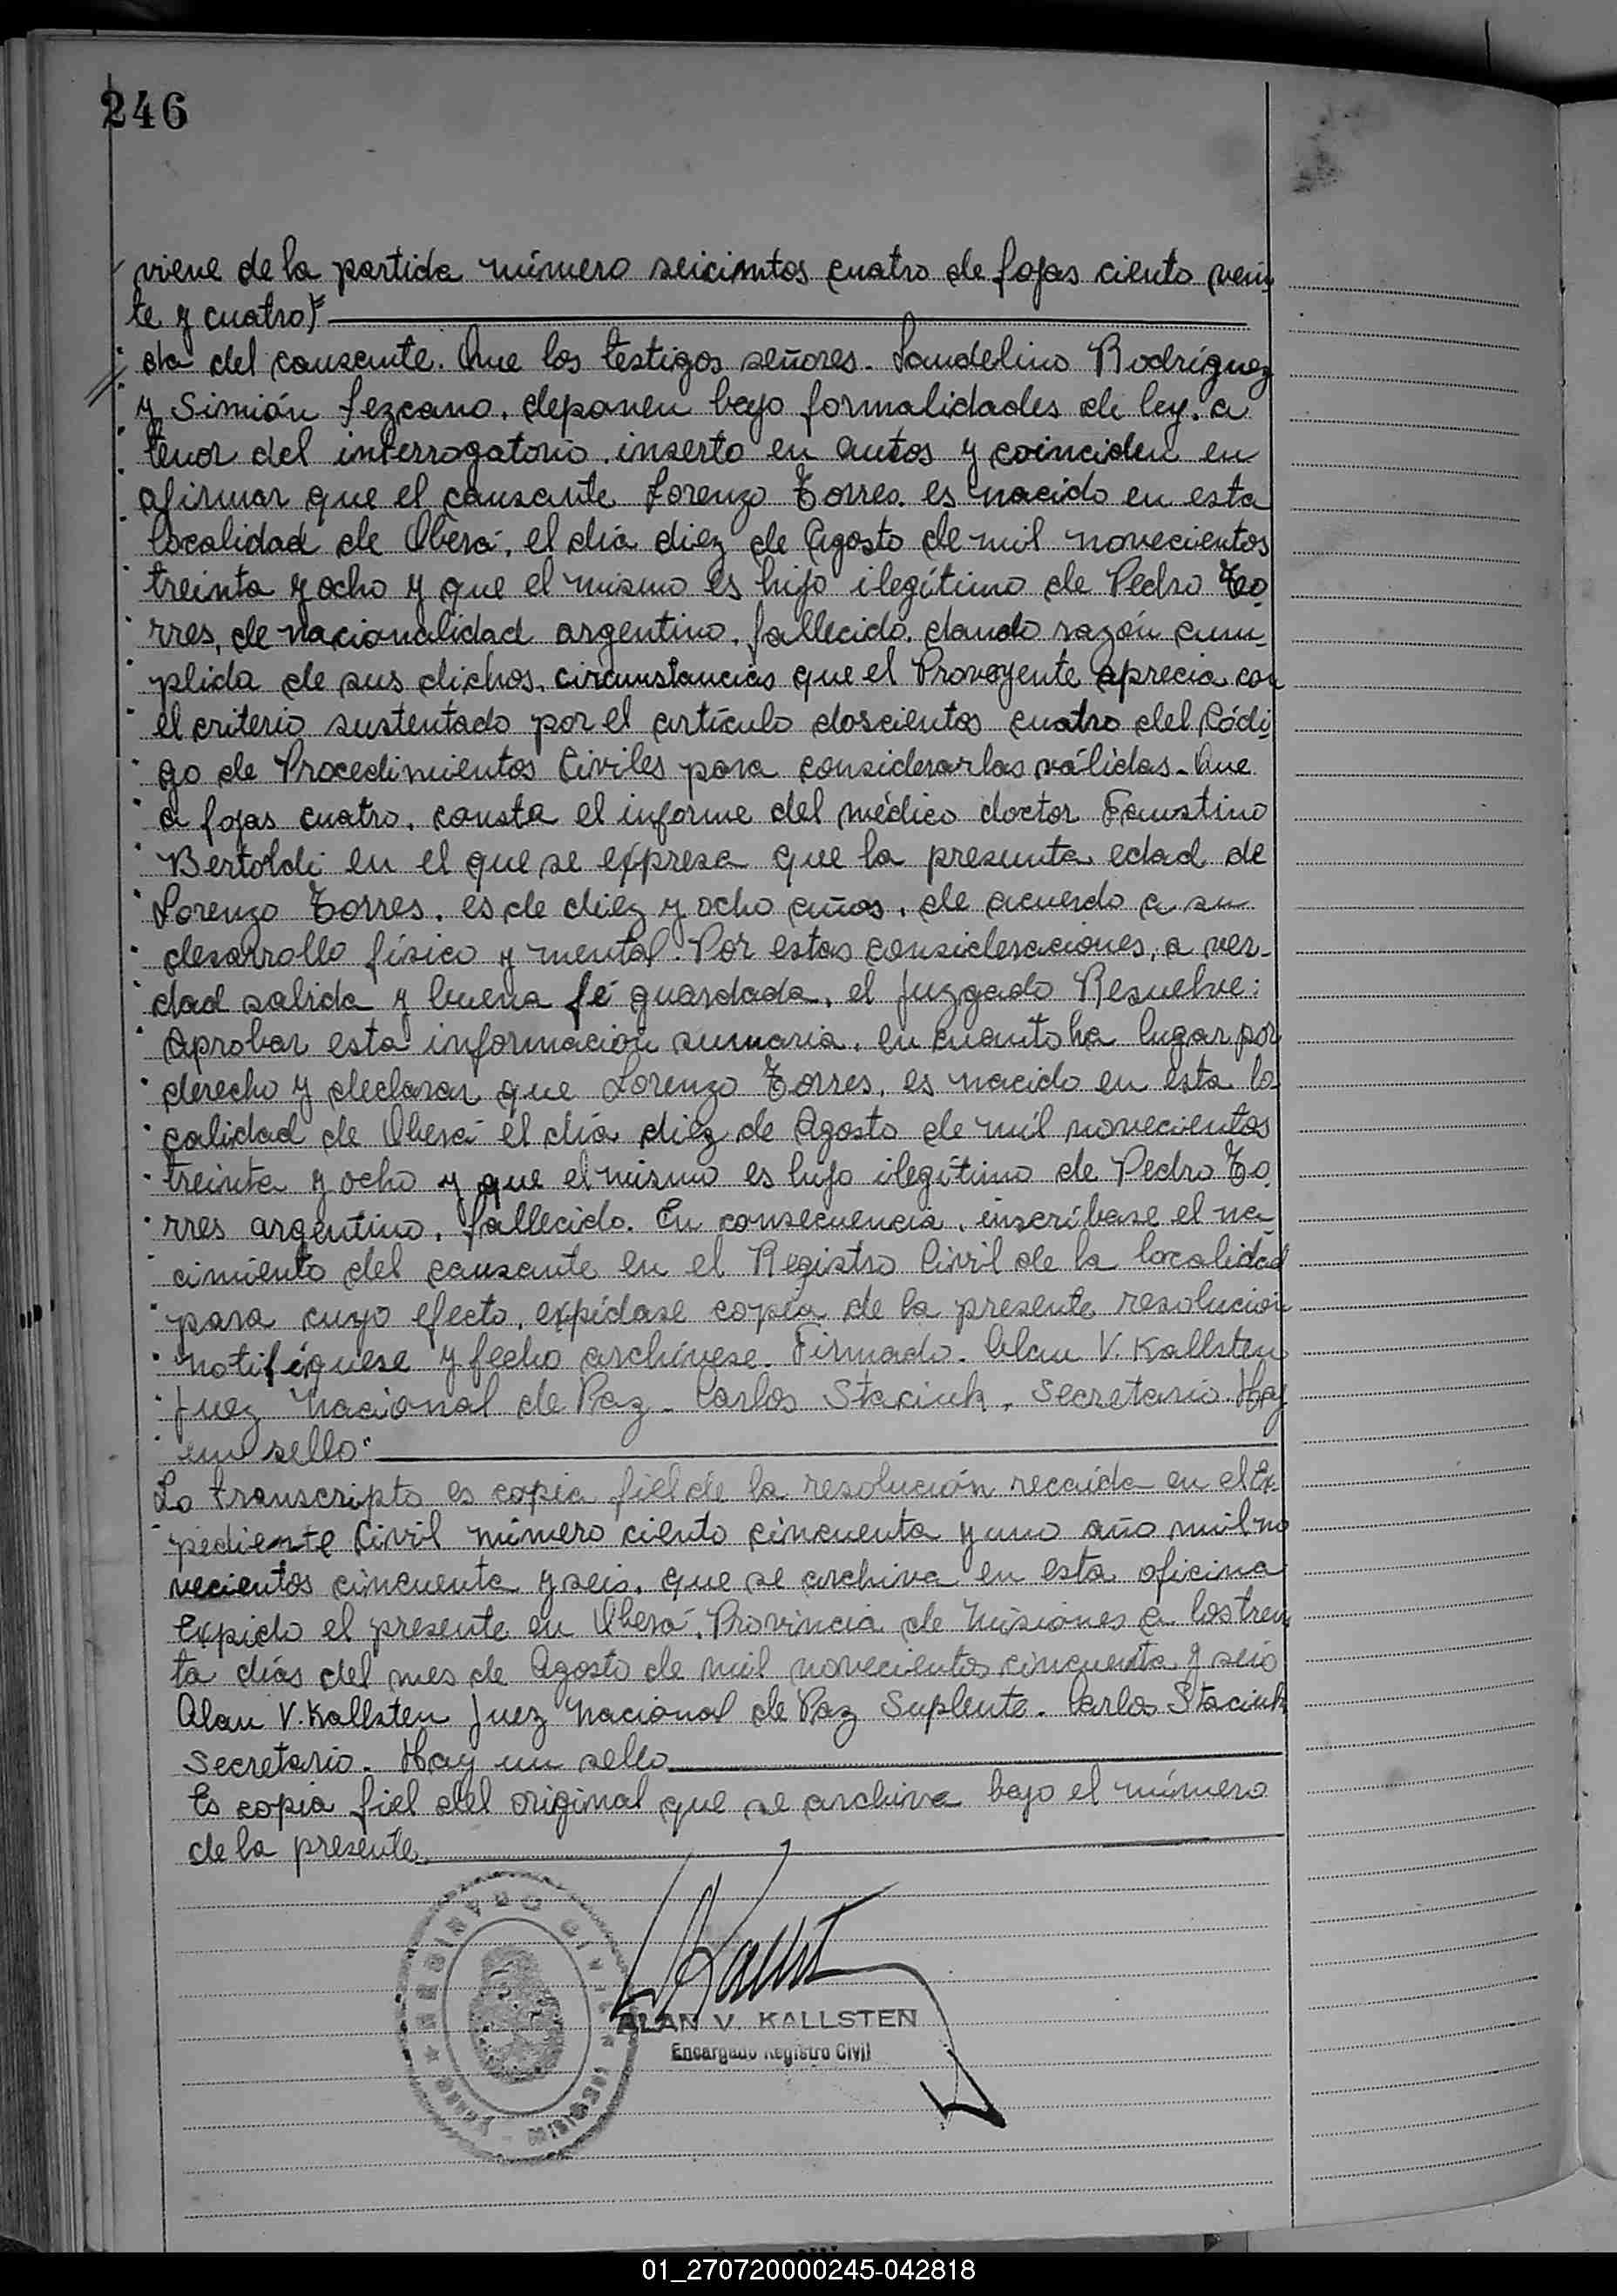 246
viene de la partida número seicientos cuatro de fojas ciento vein
te y cuatro)=
da del causante. Que los testigos señores. Laudelino Rodríguez
y Simión Lezcano, deponen bajo formalidades de ley. a
tenor del interrogatorio inserto en autos y coinciden en
afirmar que el causante Lorenzo Torres. es nacido en esta
localidad de Oberá, el día diez de Agosto de mil novecientos
treinta y ocho y que el mismo es hijo ilegítimo de Pedro To
rres, de nacionalidad argentino, fallecido, dando razón cum-
plida de sus dichos, circunstancias que el Proveyente aprecia con
el criterio sustentado por el artículo doscientos cuatro del Códi
go de Procedimientos Civiles para considerarlas válidas. Que
a fojas cuatro, consta el informe del médico doctor Faustino
Bertoldi en el que se expresa que la presunta edad de
Lorenzo Torres. es de diez y ocho años, de acuerdo a su
desarrollo físico y mental. Por estas consideraciones, a ver-
dad salida y buena fé guardada, el Juzgado Resuelve:
Aprobar esta información sumaria, en cuanto ha lugar por
derecho y declarar que Lorenzo Torres, es nacido en esta lo
calidad de Oberá el día diez de Agosto de mil novecientos
treinta y ocho y que el mismo es hijo ilegítimo de Pedro To
rres argentino, fallecido. En consecuencia, inscríbase el na
cimiento del causante en el Registro Civil de la localidad
para cuyo efecto, expídase copia de la presente resolución
notifíquese y fecho archívese. Firmado. Alan V. Kallsten
Juez Nacional de Paz - Carlos Staciuk, Secretario. Hay
un sello"
Lo transcripto es copia fiel de la resolución recaída en el Ex-
pediente Civil número ciento cincuenta y uno año mil no
vecientos cincuenta y seis, que se archiva en esta oficina
Expido el presente en Oberá, Provincia de Misiones a los trein
ta días del mes de Agosto de mil novecientos cincuenta y seis
Alan V. Kallsten Juez Nacional de Paz Suplente. Carlos Staciuk
Secretario. Hay un sello
Es copia fiel del original que se archiva bajo el número
de la presente.
ALAN V. KALLSTEN
Encargado Registro Civil
01_270720000245-042818